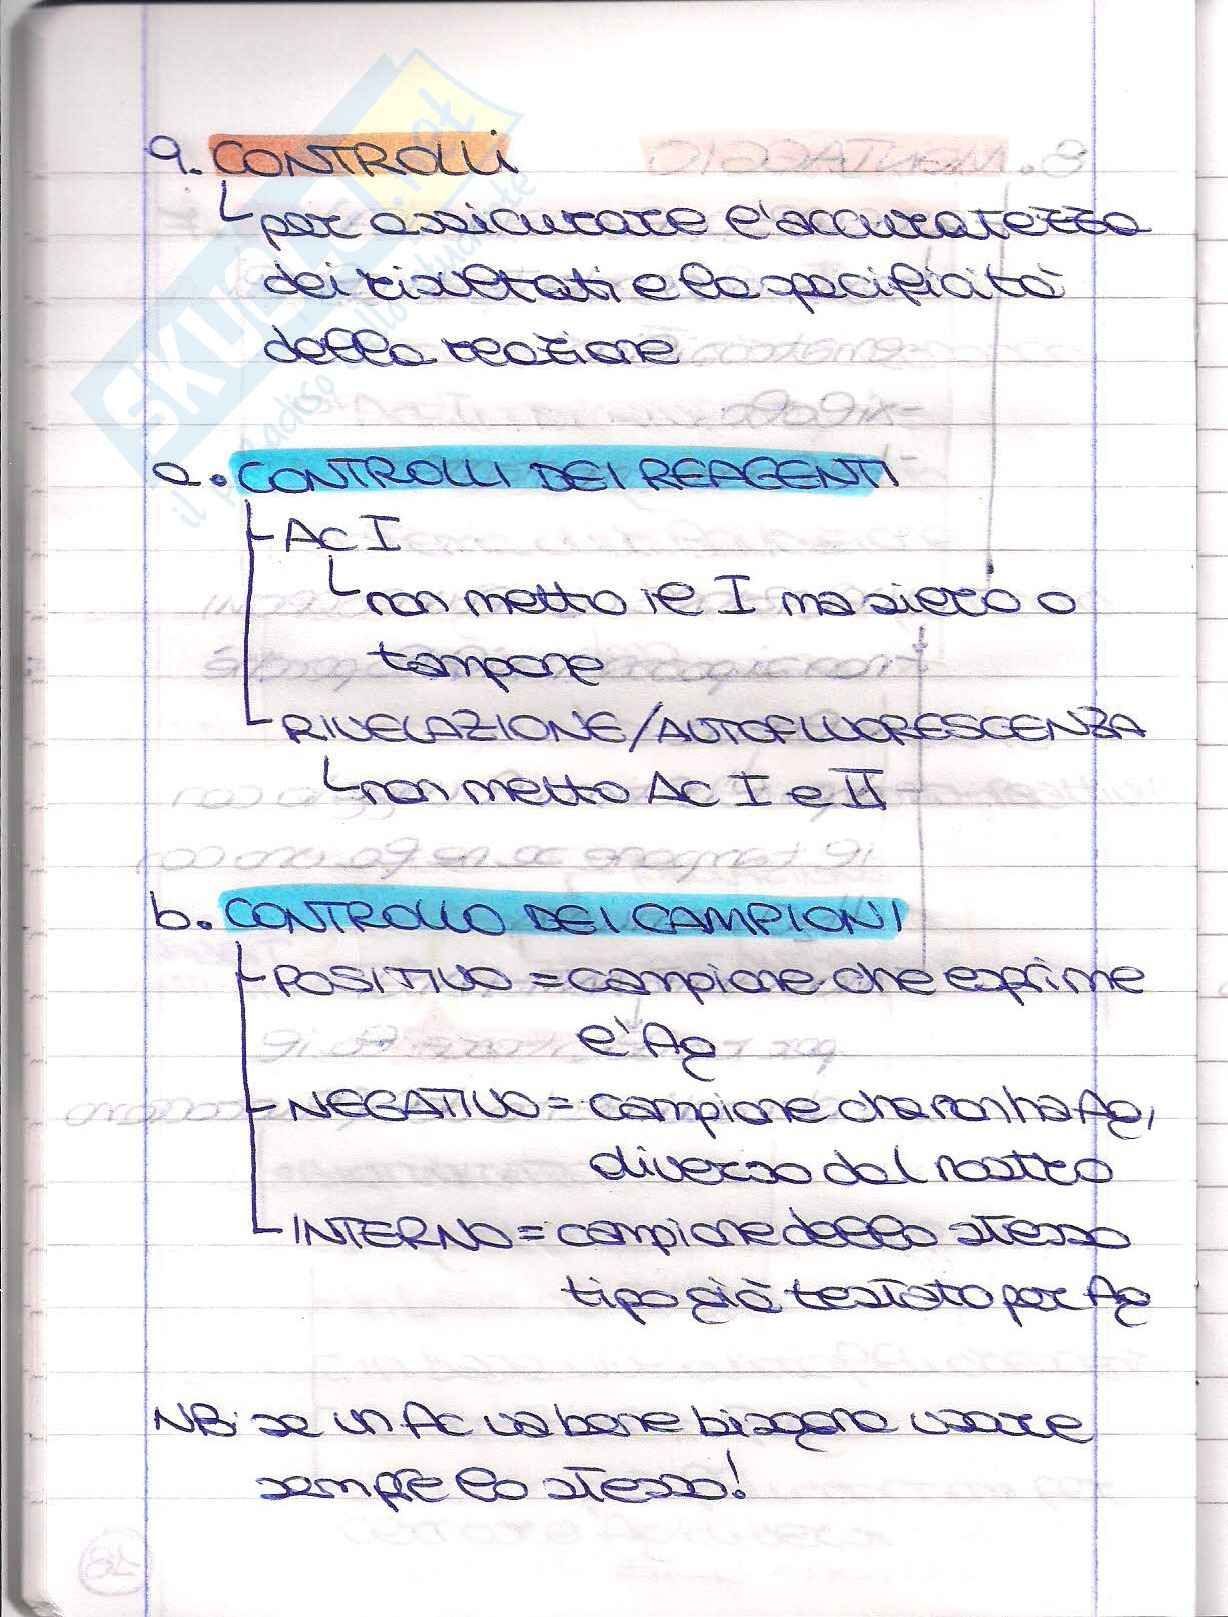 9. CONTROLLI
per assicurare l'accuratezza
dei risultati e la specificità
della reazione
a. CONTROLLI DEI REAGENTI
Ac I
non metto il I ma siero o
tampone
RIVELAZIONE/AUTOFLUORESCENZA
non metto Ac I e II
b. CONTROLLO DEI CAMPIONI
POSITIVO = campione che esprime
l'Ag
NEGATIVO = campione che non ha Ag,
diverso dal nostro
INTERNO = campione dello stesso
tipo già testato per Ag
NB: se un Ac va bene bisogna usare
sempre lo stesso!
SKUOLA.net
il paradiso dello studente